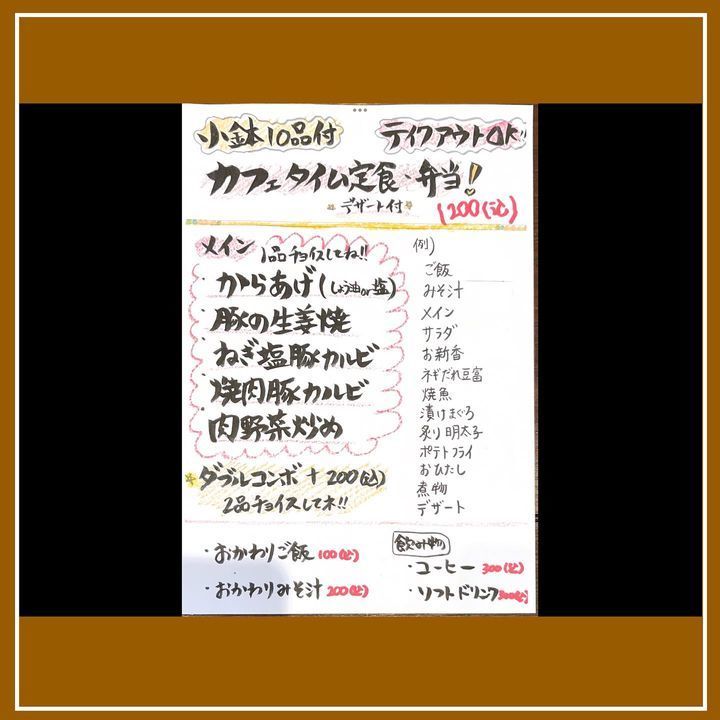 小鉢10品付
テイクアウトOK!!
カフェタイム定食・弁当!
デザート付
1200(込)
メイン 1品チョイスしてね!!
・からあげ(しょう油or塩)
・豚の生姜焼
・ねぎ塩豚カルビ
・焼肉豚カルビ
・肉野菜炒め
ダブルコンボ + 200(込)
2品チョイスしてネ!!
例)
ご飯
みそ汁
メイン
サラダ
お新香
ネギだれ豆富
焼魚
漬けまぐろ
炙り明太子
ポテトフライ
おひたし
煮物
デザート
・おかわりご飯 100(込)
・おかわりみそ汁 200(込)
飲み物
・コーヒー 300(込)
・ソフトドリンク